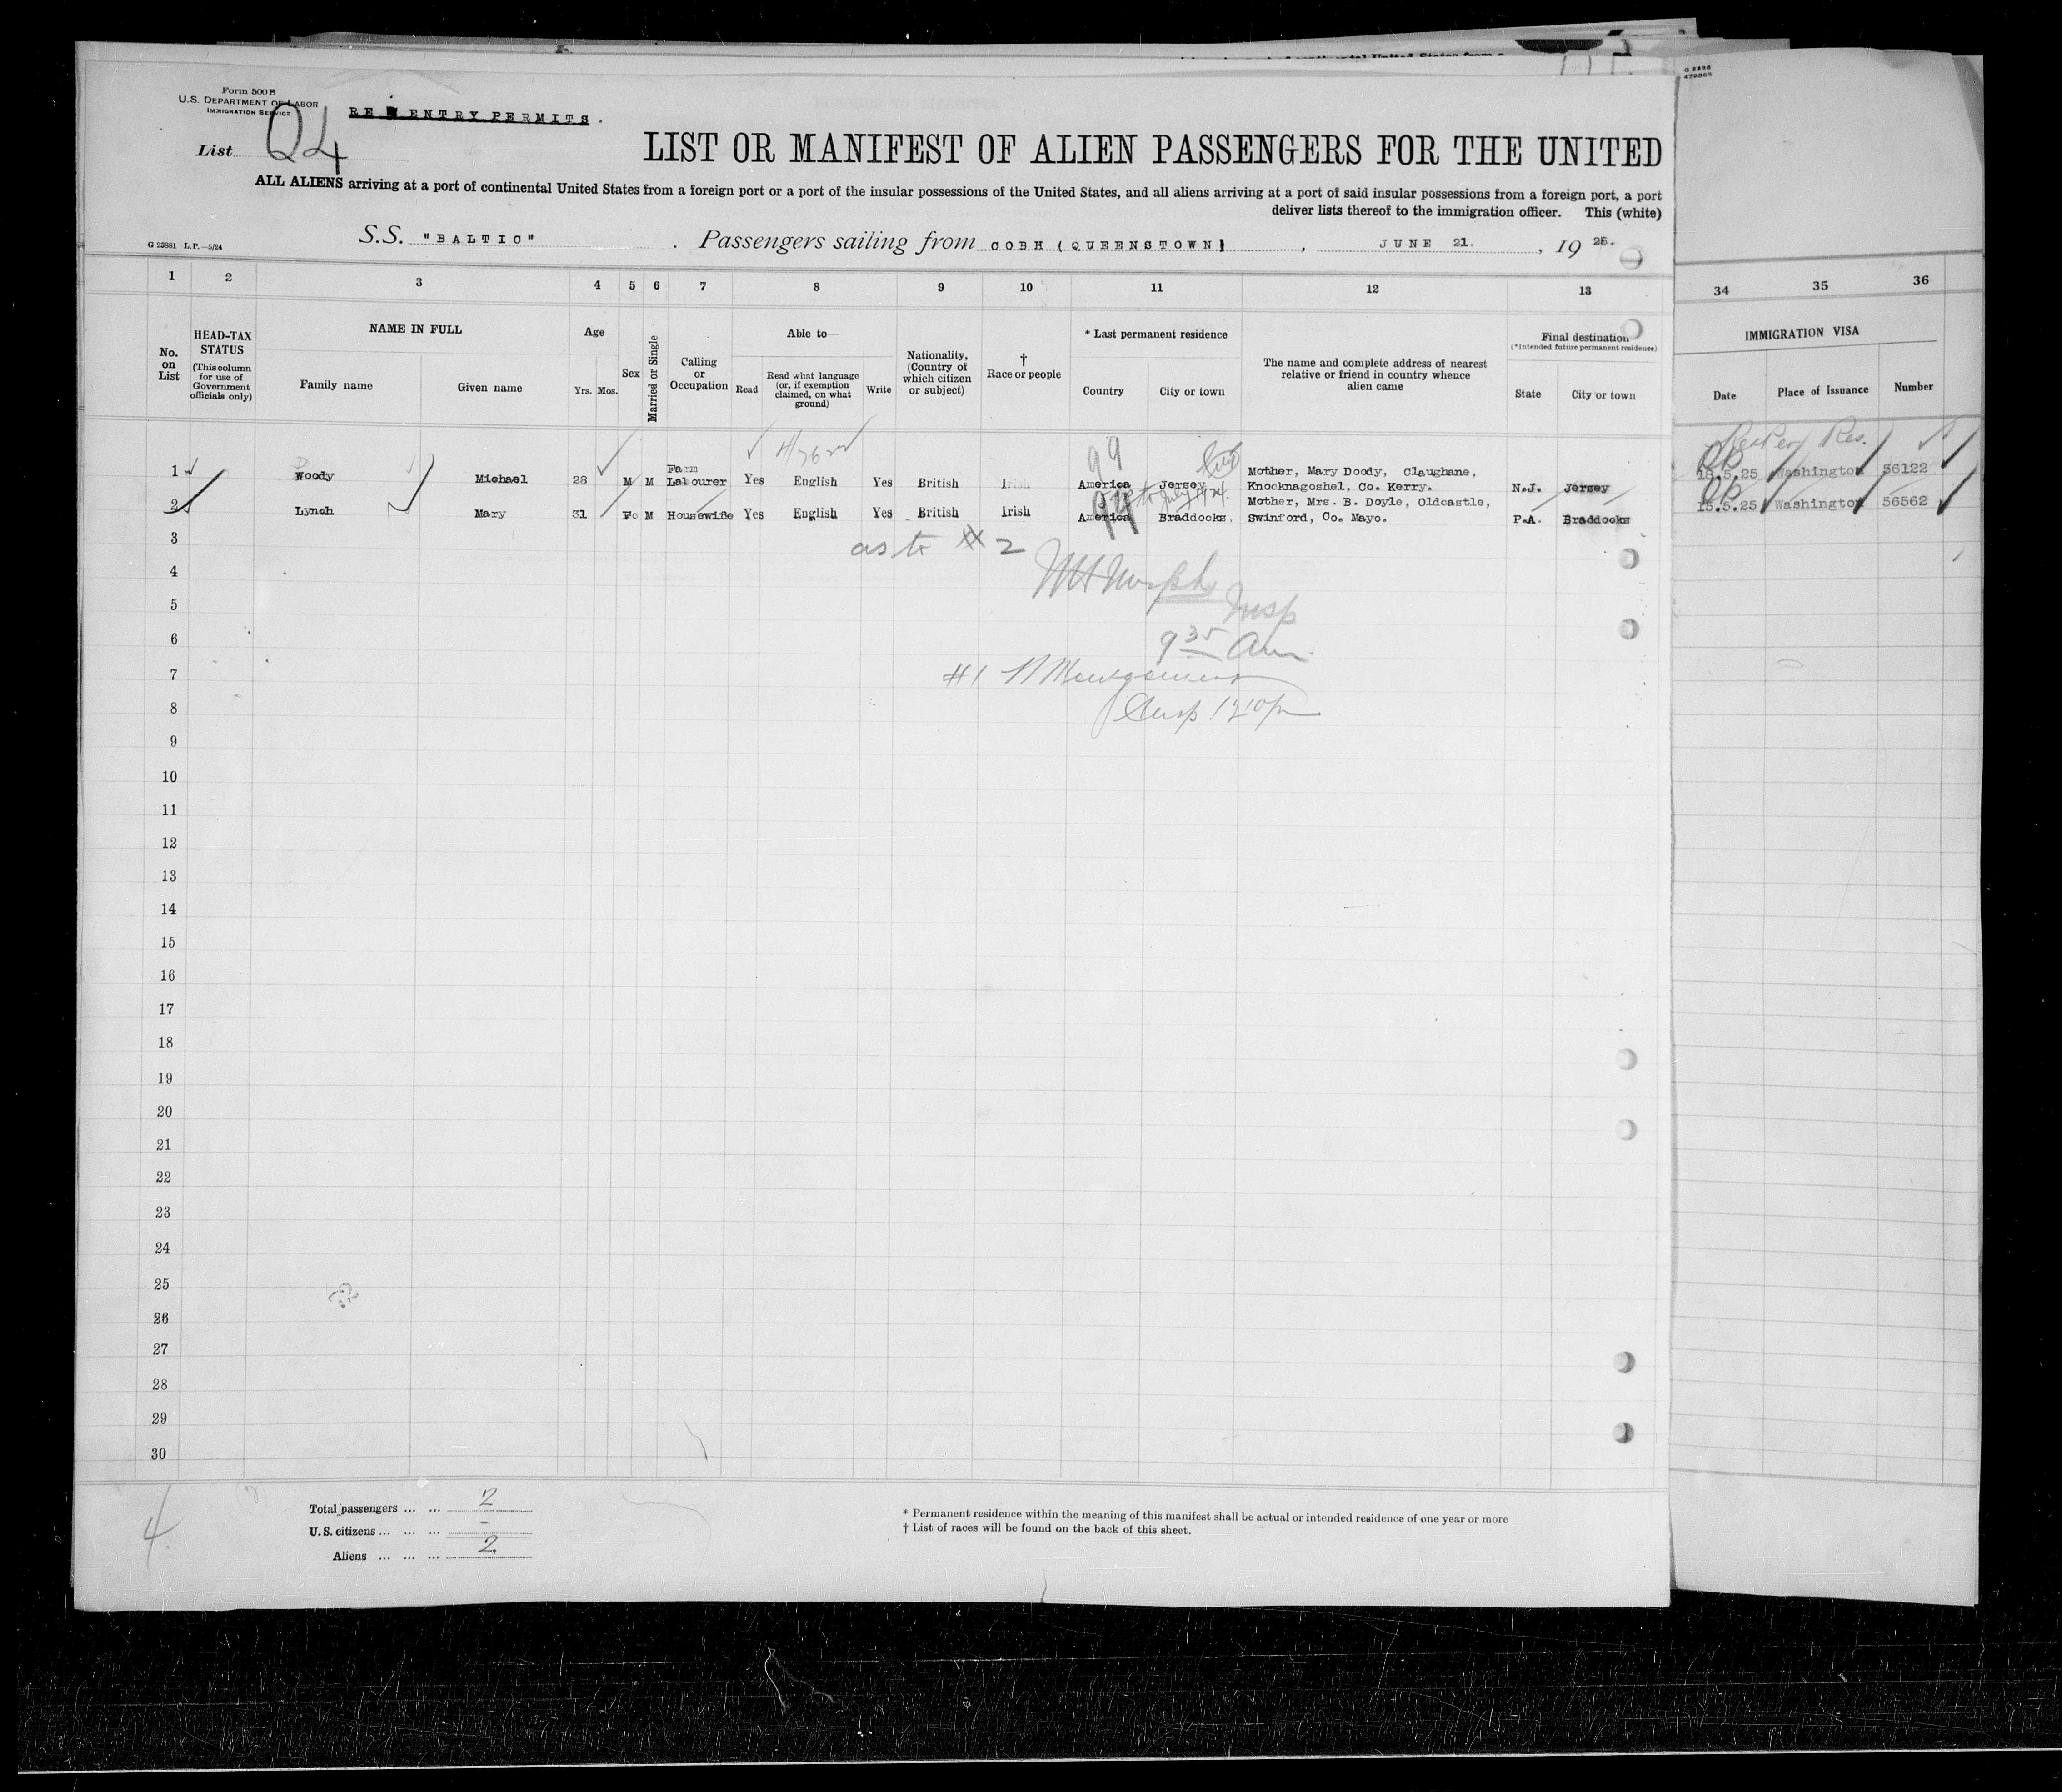 Form 500 B
U.S. DEPARTMENT OF LABOR
IMMIGRATION SERVICE
RE ENTRY PERMITS.
List 24
LIST OR MANIFEST OF ALIEN PASSENGERS FOR THE UNITED
ALL ALIENS arriving at a port of continental United States from a foreign port or a port of the insular possessions of the United States, and all aliens arriving at a port of said insular possessions from a foreign port, a port
deliver lists thereof to the immigration officer. This (white)
G 23881 L.P.—5/24
S.S. "BALTIC". Passengers sailing from COBH (QUEENSTOWN), JUNE 21., 1925.
1 2 3 4 5 6 7 8 9 10 11 12 13 34 35 36
No. on List
HEAD-TAX STATUS
(This column for use of Government officials only)
NAME IN FULL
Family name
Given name
Age
Yrs. Mos.
Sex
Married or Single
Calling or Occupation
Able to—
Read
Read what language (or, if exemption claimed, on what ground)
Write
Nationality, (Country of which citizen or subject)
† Race or people
* Last permanent residence
Country
City or town
The name and complete address of nearest relative or friend in country whence alien came
Final destination
(*Intended future permanent residence)
State
City or town
IMMIGRATION VISA
Date
Place of Issuance
Number
1 Woody Michael 28 M M Farm Labourer Yes English Yes British Irish America Jersey Mother, Mary Doody, Claughane, Knocknagoshel, Co. Kerry. N.J. Jersey 18.5.25 Washington 56122
2 Lynch Mary 31 Fe M Housewife Yes English Yes British Irish America Braddocks. Mother, Mrs. B. Doyle, Oldcastle, Swinford, Co. Mayo. P.A. Braddocks 15.5.25 Washington 56562
99
3
as to #2
4
5
Insp
6
9 35 Am
7
#1
8
Insp 1210pm
9
10
11
12
13
14
15
16
17
18
19
20
21
22
23
24
25
26
27
28
29
30
4
Total passengers ... ... 2
U.S. citizens ... ... ... –
Aliens ... ... ... 2
* Permanent residence within the meaning of this manifest shall be actual or intended residence of one year or more
† List of races will be found on the back of this sheet.